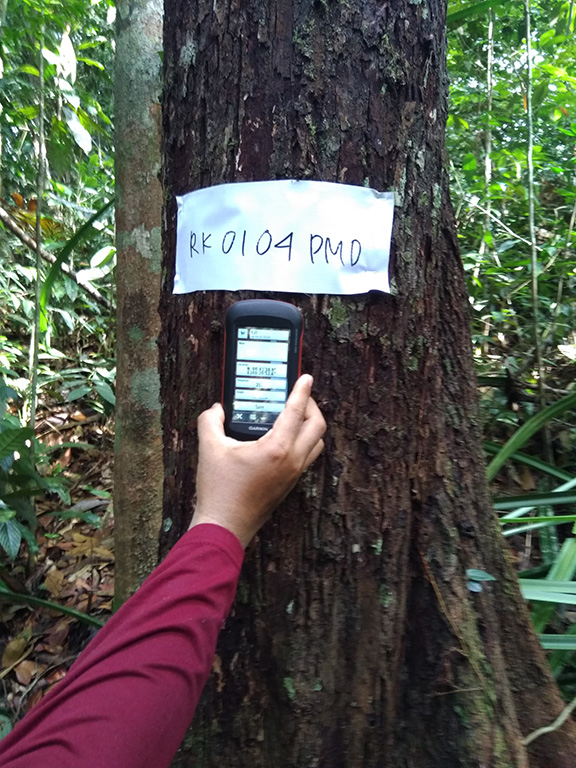 RK 0104 PMD
GARMIN